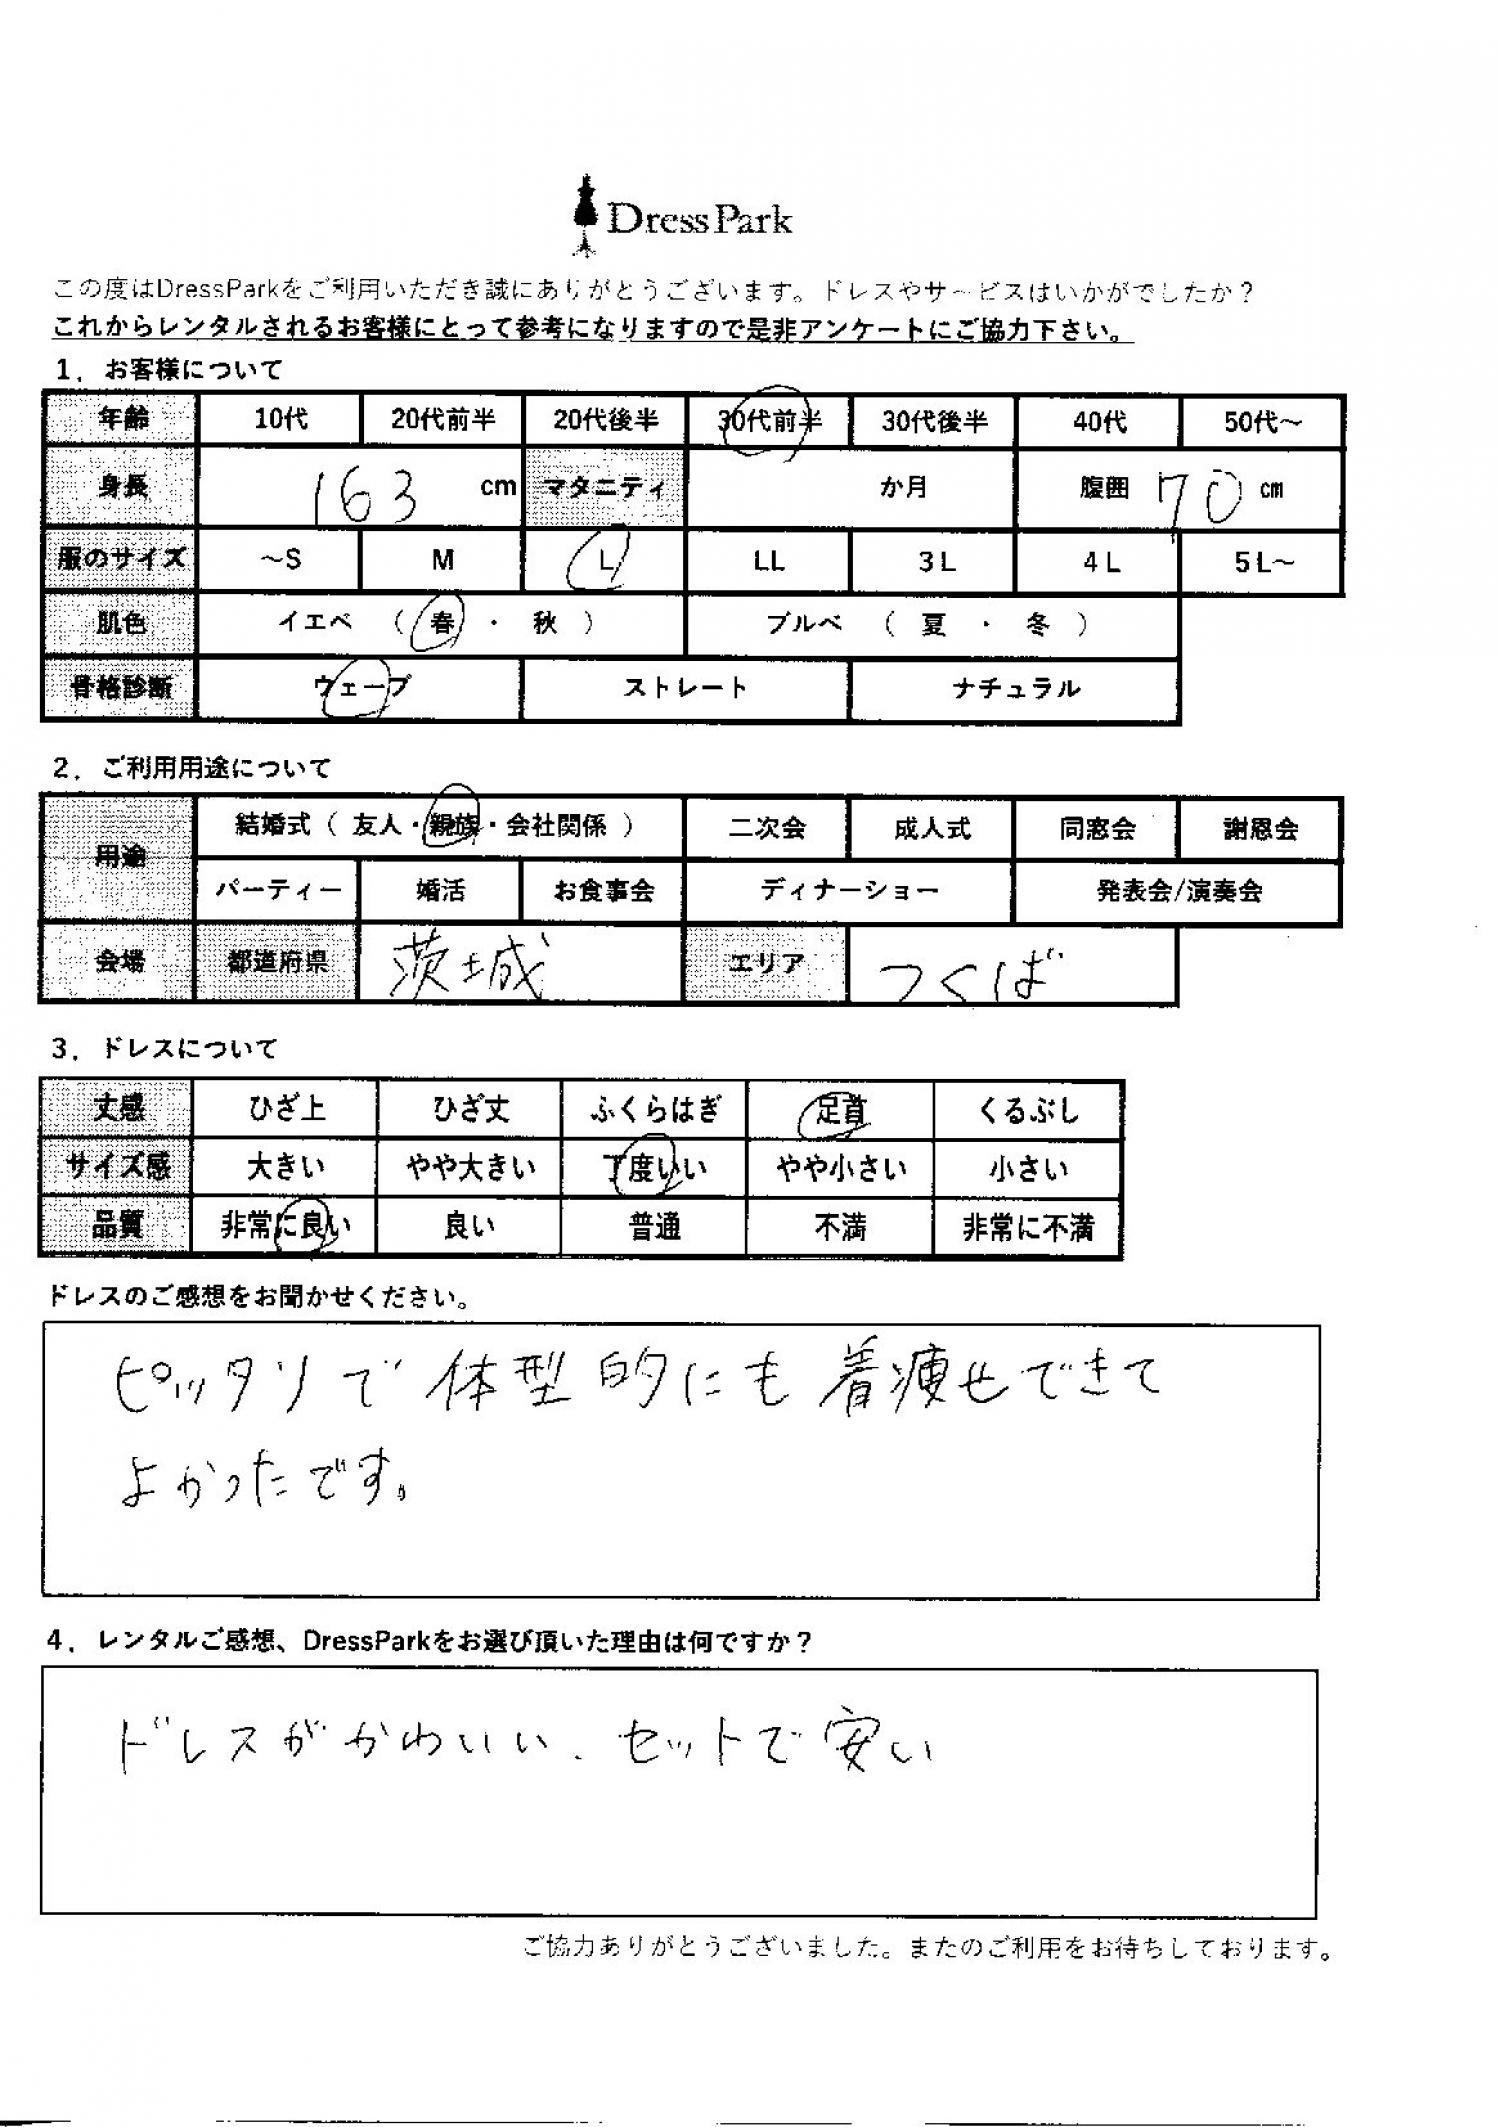 DressPark
この度はDressParkをご利用いただき誠にありがとうございます。ドレスやサービスはいかがでしたか？
これからレンタルされるお客様にとって参考になりますので是非アンケートにご協力下さい。
1．お客様について
年齢 10代 20代前半 20代後半 30代前半 30代後半 40代 50代～
身長 163 cm マタニティ か月 腹囲 70 cm
服のサイズ ～S M L LL 3L 4L 5L～
肌色 イエベ （ 春 ・ 秋 ） ブルベ （ 夏 ・ 冬 ）
骨格診断 ウェーブ ストレート ナチュラル
2．ご利用用途について
用途 結婚式（ 友人・親族・会社関係 ） 二次会 成人式 同窓会 謝恩会
パーティー 婚活 お食事会 ディナーショー 発表会/演奏会
会場 都道府県 茨城 エリア つくば
3．ドレスについて
丈感 ひざ上 ひざ丈 ふくらはぎ 足首 くるぶし
サイズ感 大きい やや大きい 丁度いい やや小さい 小さい
品質 非常に良い 良い 普通 不満 非常に不満
ドレスのご感想をお聞かせください。
ピッタリで体型的にも着痩せできて
よかったです。
4．レンタルご感想、DressParkをお選び頂いた理由は何ですか？
ドレスがかわいい、セットで安い
ご協力ありがとうございました。またのご利用をお待ちしております。